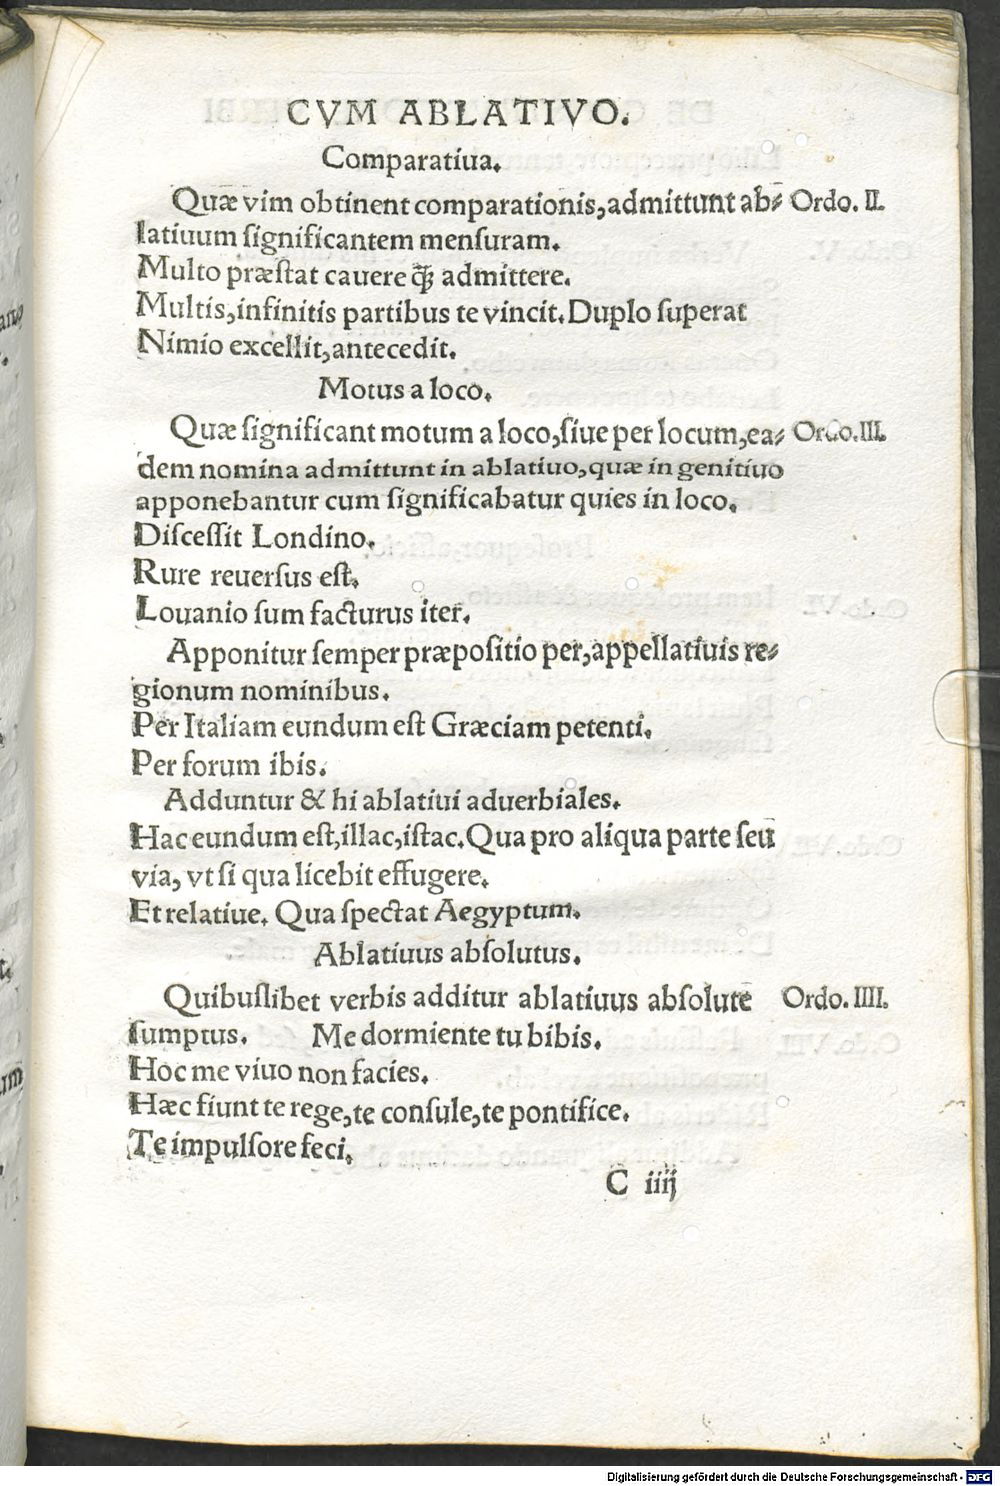 CVM ABLATIVO.
Comparatiua.
Quæ vim obtinent comparationis,admittunt ab⸗ Ordo. II.
latiuum ſignificantem menſuram.
Multo præſtat cauere ꝙ̃ admittere.
Multis,infinitis partibus te vincit.Duplo ſuperat
Nimio excellit,antecedit.
Motus a loco.
Quæ ſignificant motum a loco,ſiue per locum,ea⸗ Ordo.III.
dem nomina admittunt in ablatiuo,quæ in genitiuo
apponebantur cum ſignificabatur quies in loco.
Diſceſſit Londino.
Rure reuerſus eſt.
Louanio ſum facturus iter.
Apponitur ſemper præpoſitio per,appellatiuis re⸗
gionum nominibus.
Per Italiam eundum eſt Græciam petenti.
Per forum ibis.
Adduntur & hi ablatiui aduerbiales.
Hac eundum eſt,illac,iſtac.Qua pro aliqua parte ſeu
via, vt ſi qua licebit effugere.
Et relatiue. Qua ſpectat Aegyptum.
Ablatiuus abſolutus.
Quibuſlibet verbis additur ablatiuus abſolute Ordo. IIII.
ſumptus. Me dormiente tu bibis.
Hoc me viuo non facies.
Hæc fiunt te rege,te conſule,te pontifice.
Te impulſore feci.
C iiij
Digitalisierung gefördert durch die Deutsche Forschungsgemeinschaft - DFG